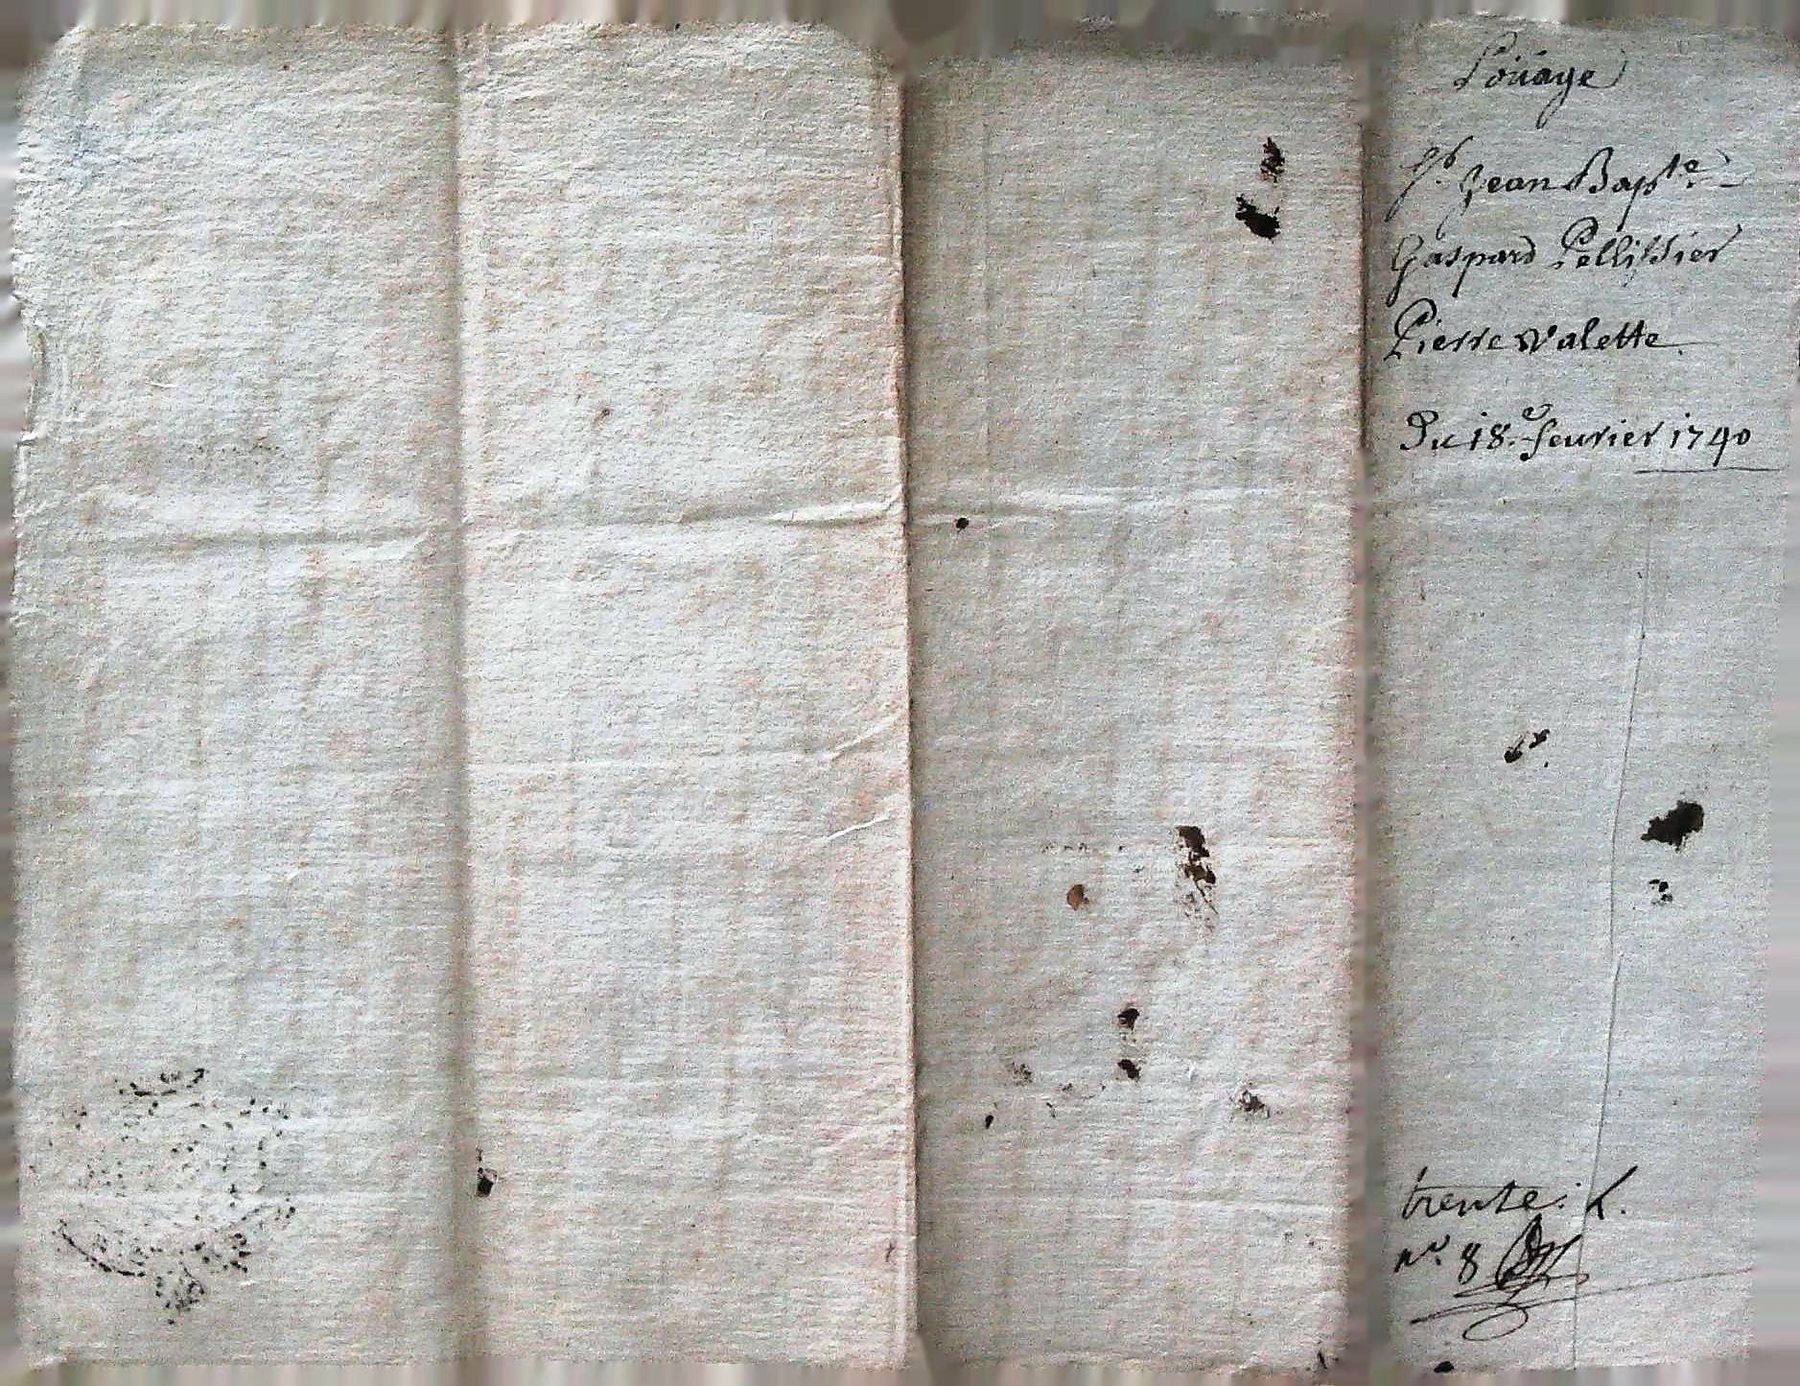 Loüage
Sr. Jean Bapte.
Gaspard Pellissier
Pierre valette.
Du 18.e feurier 1740
trente: L.
No. 8